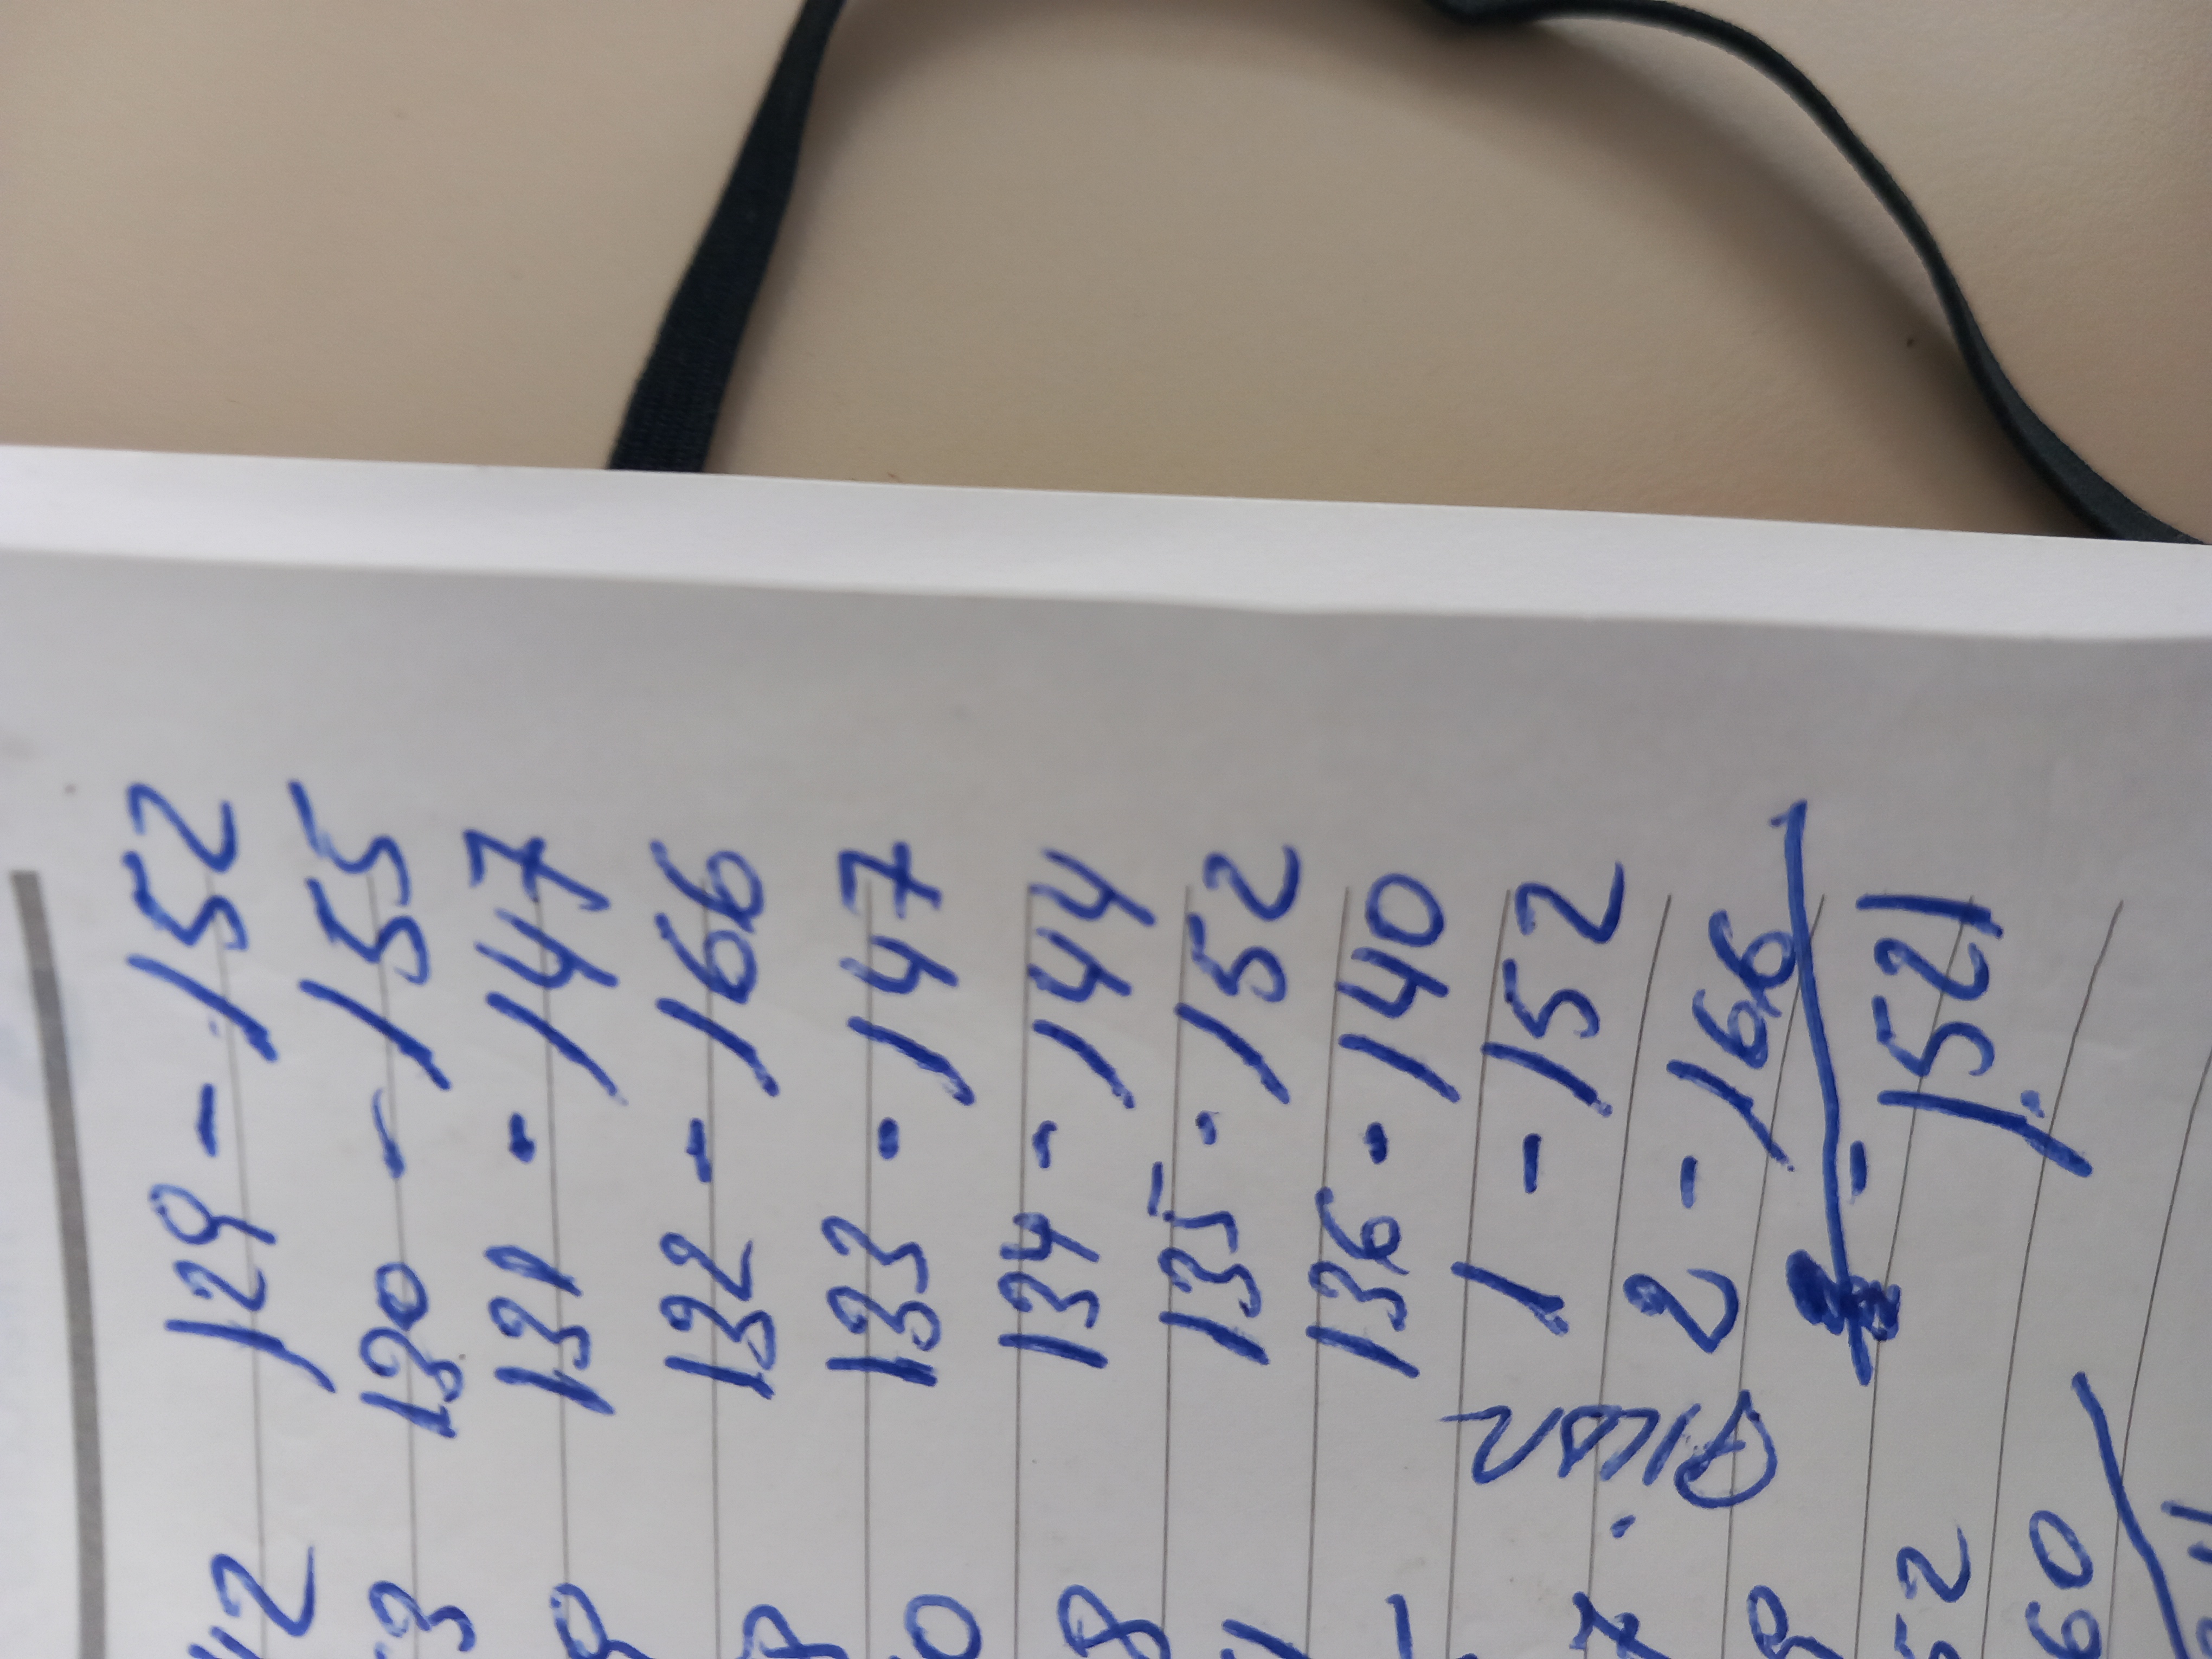 129 - 152
130 - 155
131 - 147
132 - 166
133 - 147
134 - 144
135 - 152
136 - 140
1 - 152
2 - 166
- 1521
42
3
0
8
52
60